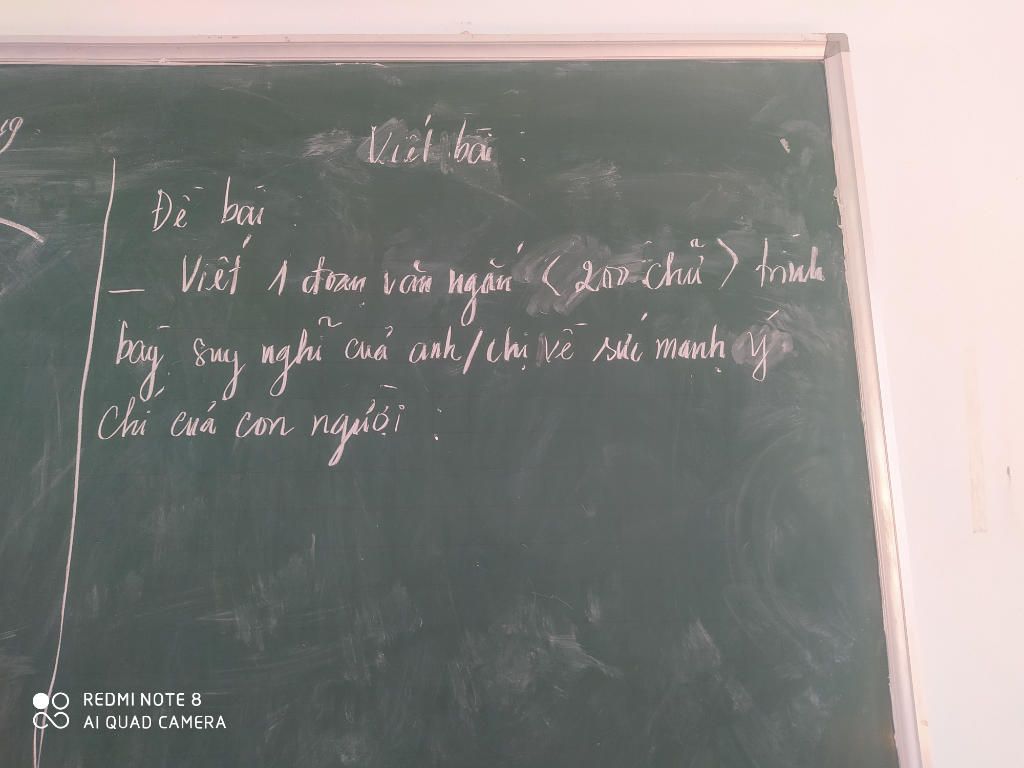 Viết bài :
Đề bài
- Viết 1 đoạn văn ngắn (200 chữ) trình
bày suy nghĩ của anh/chị về sức mạnh ý
chí của con người :
REDMI NOTE 8
AI QUAD CAMERA